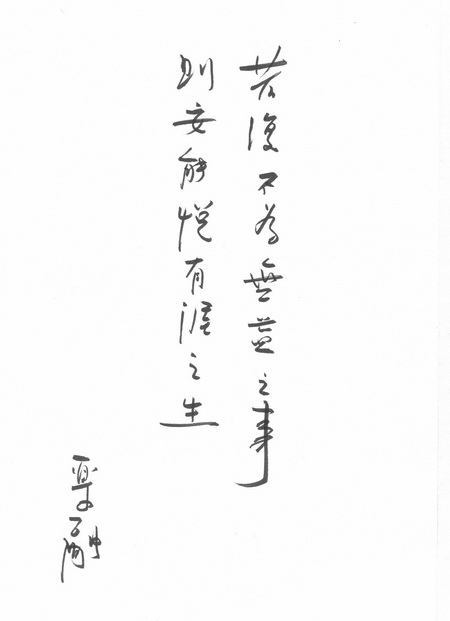 若復不為無益之事
則安能悅有涯之生